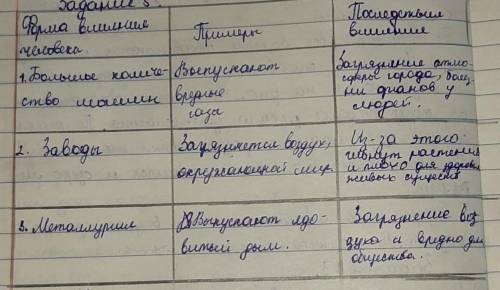 Задание 5.
Форма влияния
человека
Примеры
Последствия
влияния
1. Большое количе-
ство машин
Выпускают
вредные
газы
Загрязнение атмо-
сферы города, болез-
ни у
людей.
2. Заводы
Загрязняется воздух,
окружающий мир
Из-за этого
гибнут растения
и плохо для здоровья
живых существ
3. Металлургия
Выпускают ядо-
витый дым.
Загрязнение воз-
духа и вредно для
общества.